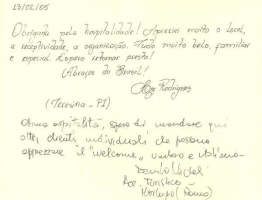 13/02/05
Obrigada pela hospitalidade! Apreciei muito o local,
a receptividade, a organização. Tudo muito belo, familiar
e especial. Espero retornar presto!
Abraços do Brasil!
Rodrigues
(Teresina - PI)
Ottima ospitalità, spero di mandare qui
altri clienti individuali che possano
apprezzare il "welcome" umbro e italiano